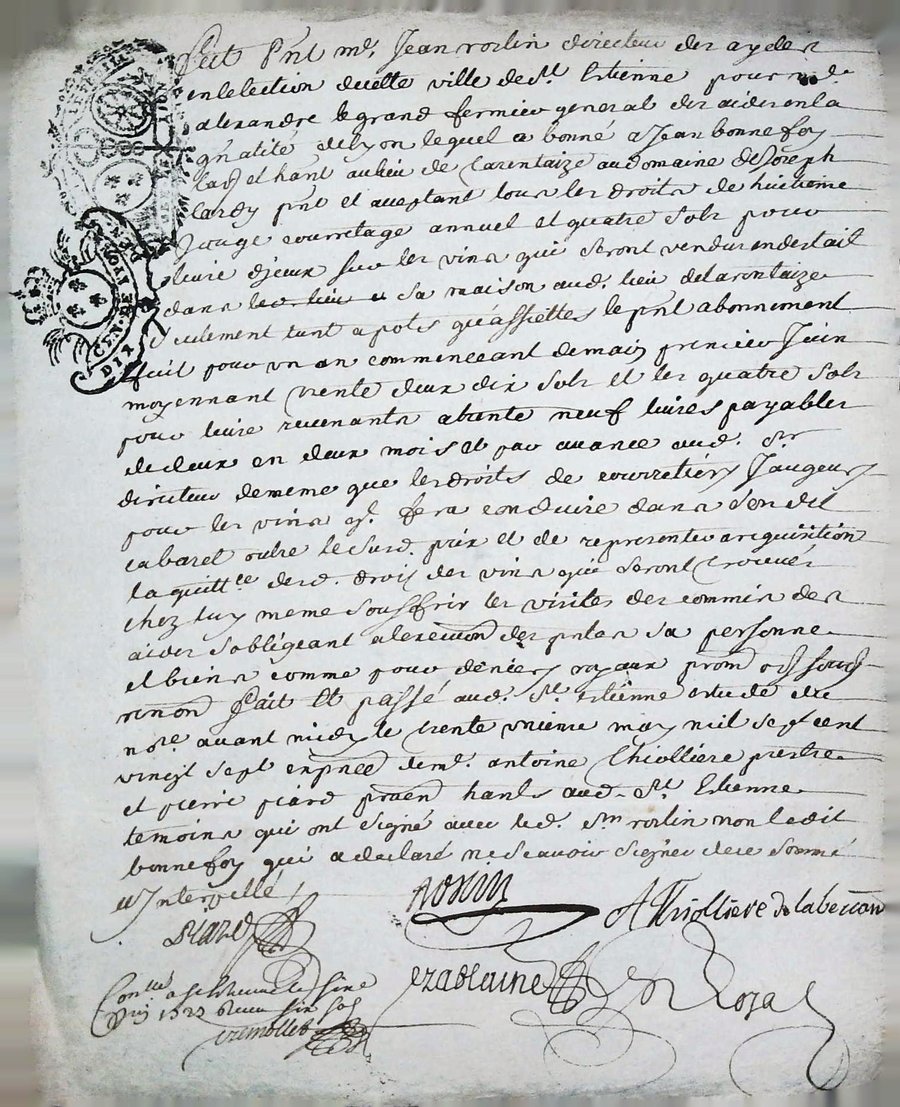 fut pnt mr. Jean roslin directeur des aydes
en lelection de cette ville de st Estienne pour me
alexandre le grand fermier general des aides en la
gnalité de lyon lequel a bonné a Jean bonnefoy
habt au lieu de tarentaize au domaine de Joseph
lardy pnt et aceptant tous les droits de huitieme
Jauge courretage annuel et quatre sols pour
livre d'jeux sur les vins qui seront vendus en destail
dans sa maison aud. lieu de tarentaize
seulement tant a pots qu'assiettes le pnt abonnement
fait pour un an commenceant demain premier Juin
moyennant trente deux dix sols et les quatre sols
pour livre revenants a trente neuf livres payables
de deux en deux mois et par avance aud. sr
directeur de meme que les droits de courretiers Jaugeurs
pour les vins ql. fera conduire dans son dit
cabaret outre le susd. prix et de representer a requisition
la quittce desd. droits des vins qui seront trouvés
chez luy meme souffrir les visites des commis des
aides s'obligeant a lexecution des pntes sa personne
et biens comme pour deniers royaux prom obl soub
renon fait et passé aud. St. Estienne estude du
nore avant midy le trente unieme may mil sept cent
vingt sept en pnce de mr. antoine thiolliere prestre
et pierre piard praen habts aud. St Estienne
temoins qui ont signé avec led. sr roslin non ledit
bonnefoy qui a declaré ne scavoir signer de ce sommé
et Interpellé
Roslin
A Thiolliere
piard
ezablaine
Roza
Conllé a St Estienne le
1727 six sols